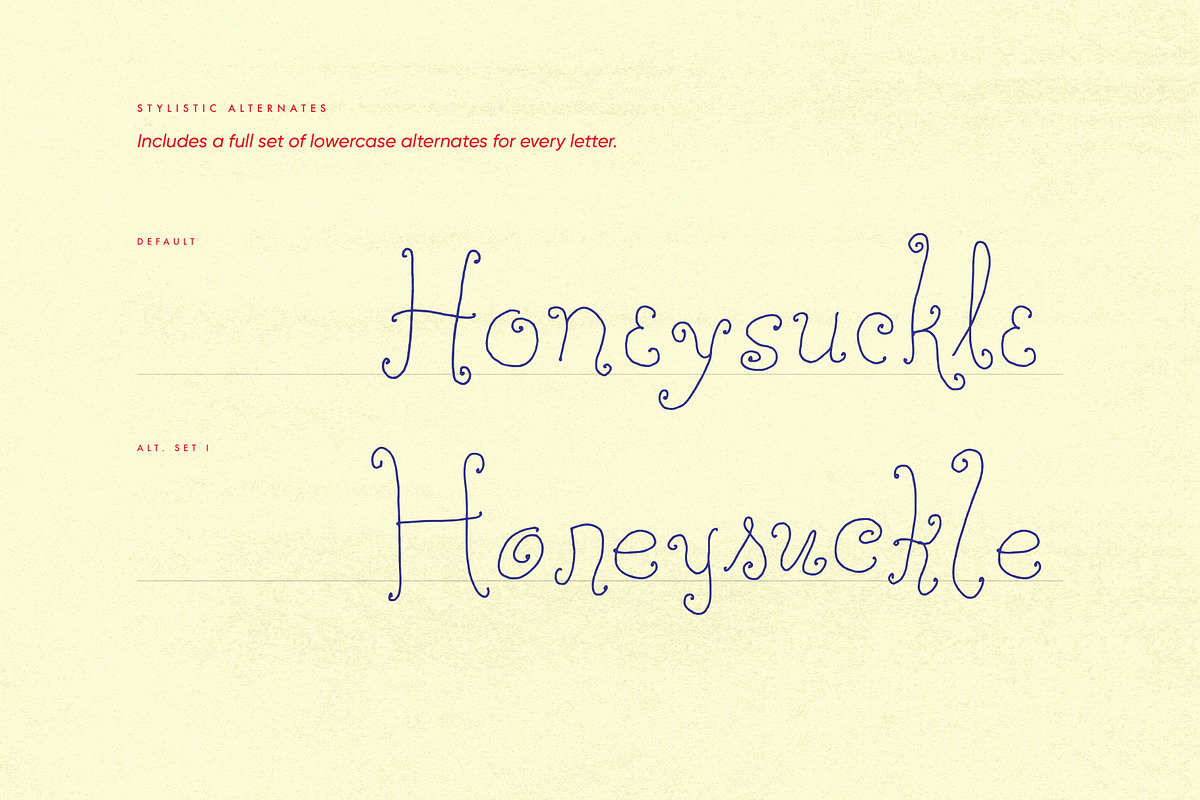 STYLISTIC ALTERNATES
Includes a full set of lowercase alternates for every letter.
DEFAULT
Honeysuckle
ALT. SET 1
Honeysuckle